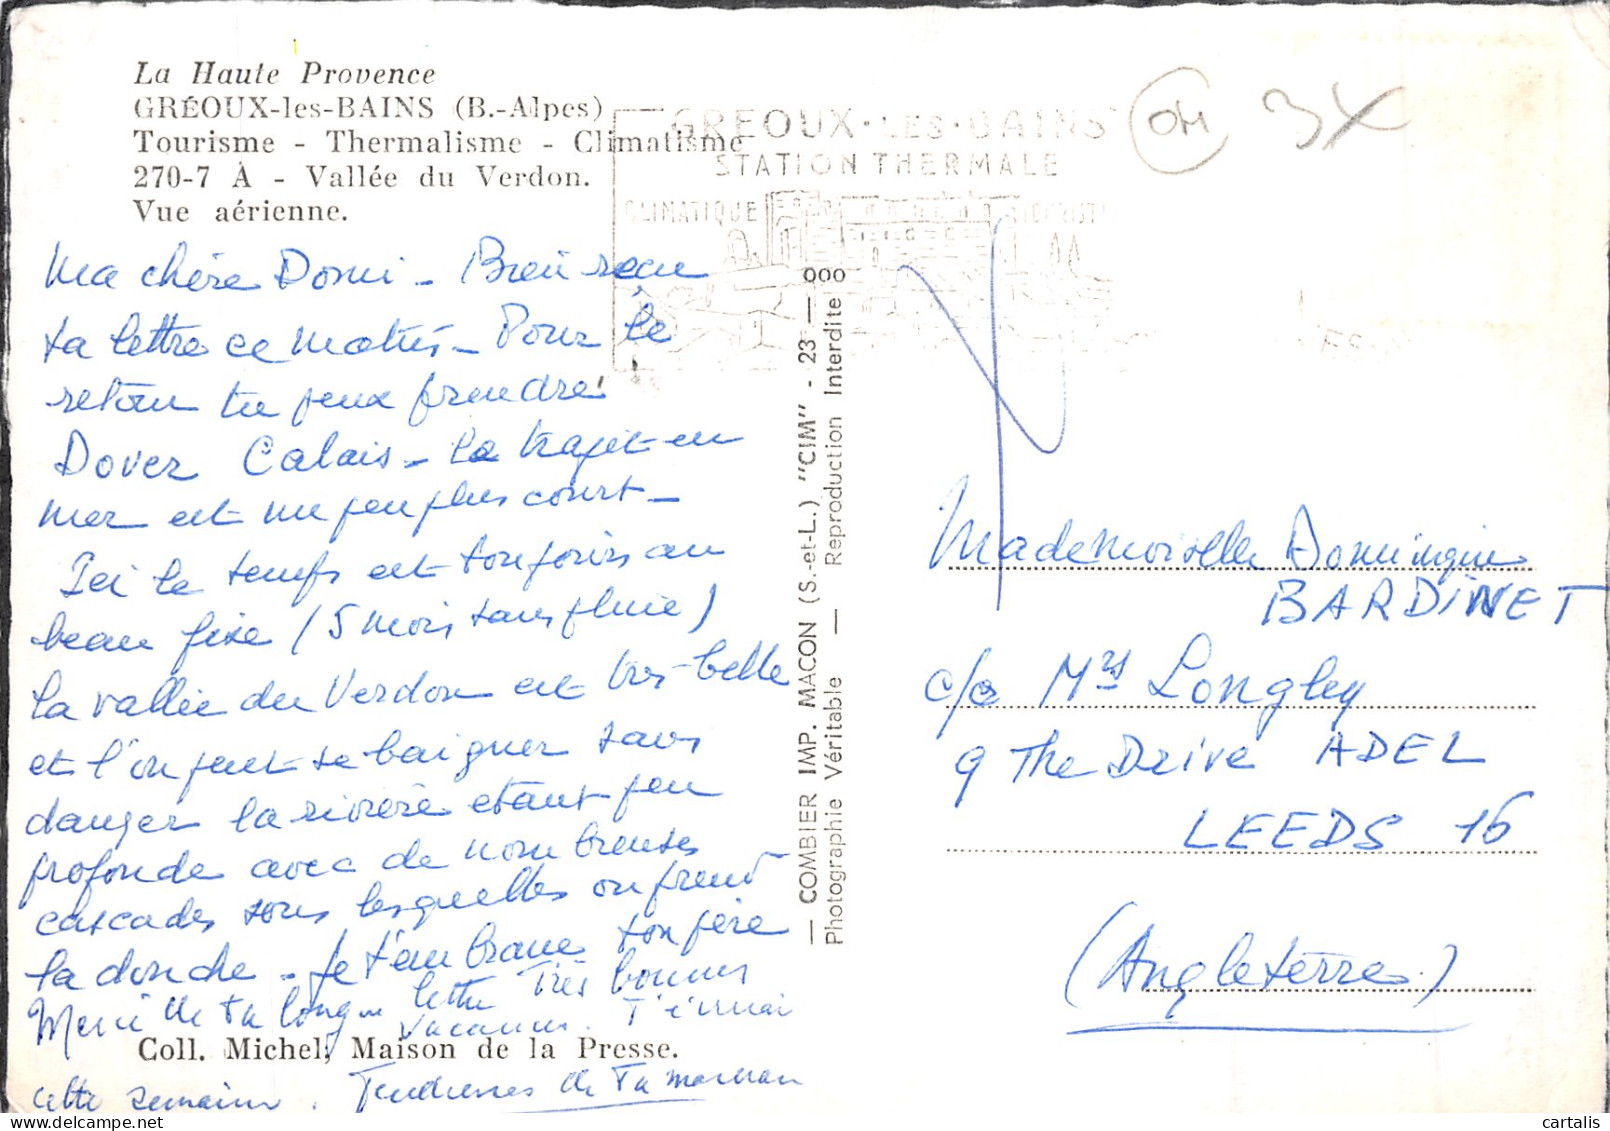 La Haute Provence
GRÉOUX-les-BAINS (B.-Alpes)
Tourisme - Thermalisme - Climatisme
270-7 A - Vallée du Verdon.
Vue aérienne.
GREOUX·LES·BAINS
STATION THERMALE
CLIMATIQUE
OM 3X
Ma chère Domi - Bien reçu
ta lettre ce matin - Pour le
retour tu peux prendre
Dover Calais - Le trajet en
mer est un peu plus court -
Ici le temps est toujours au
beau fixe (5 mois sans pluie)
La vallée du Verdon est très belle
et l'on peut se baigner sans
danger la rivière étant peu
profonde avec de nombreuses
cascades sous lesquelles on prend
la douche - Je t'embrasse ton père
Merci de ta longue lettre Très bonnes
vacances. T'écrirai
Coll. Michel, Maison de la Presse.
cette semaine. Tendresses de ta maman
— COMBIER IMP. MACON (S.-et-L.) "CIM" - 23 — 000
Photographie Véritable — Reproduction Interdite
Mademoiselle Dominique
BARDINET
c/o Mrs Longley
9 The Drive ADEL
LEEDS 16
(Angleterre)
cartalis